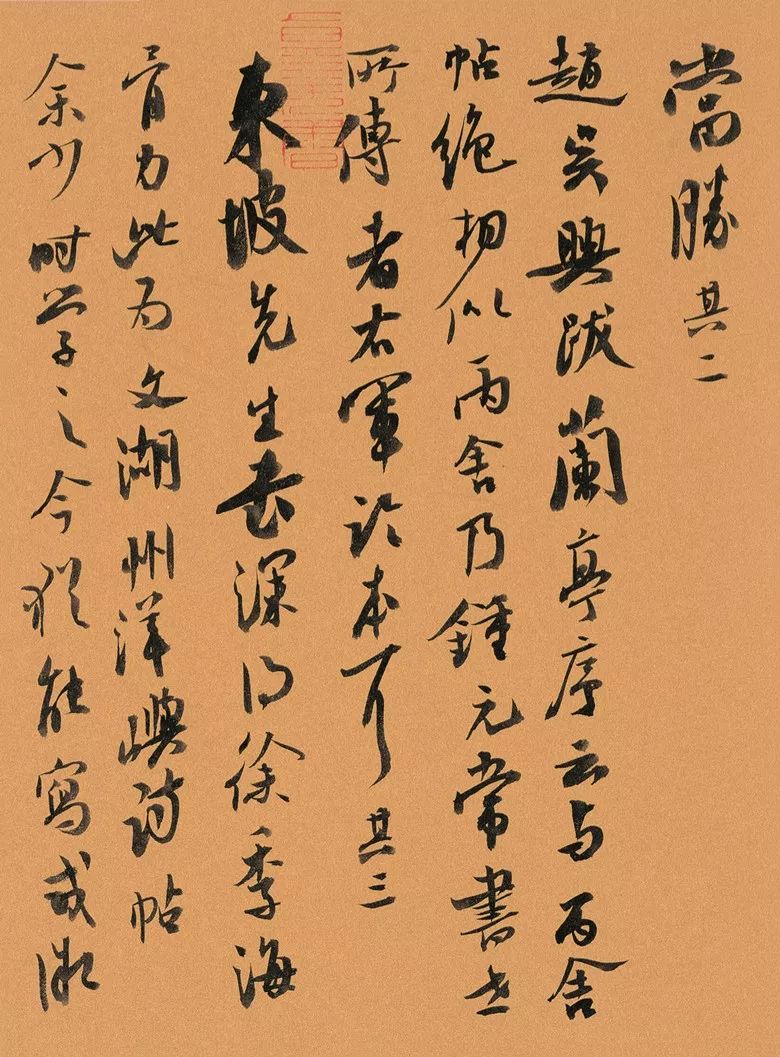 當勝其二
趙吳興跋蘭亭序云与丙舍
帖絕相似丙舍乃鍾元常書世
所傳者右軍臨本耳其三
東坡先生書深得徐季海
骨力此为文湖州洋嶼詩帖
余少时学之今猶能寫或微